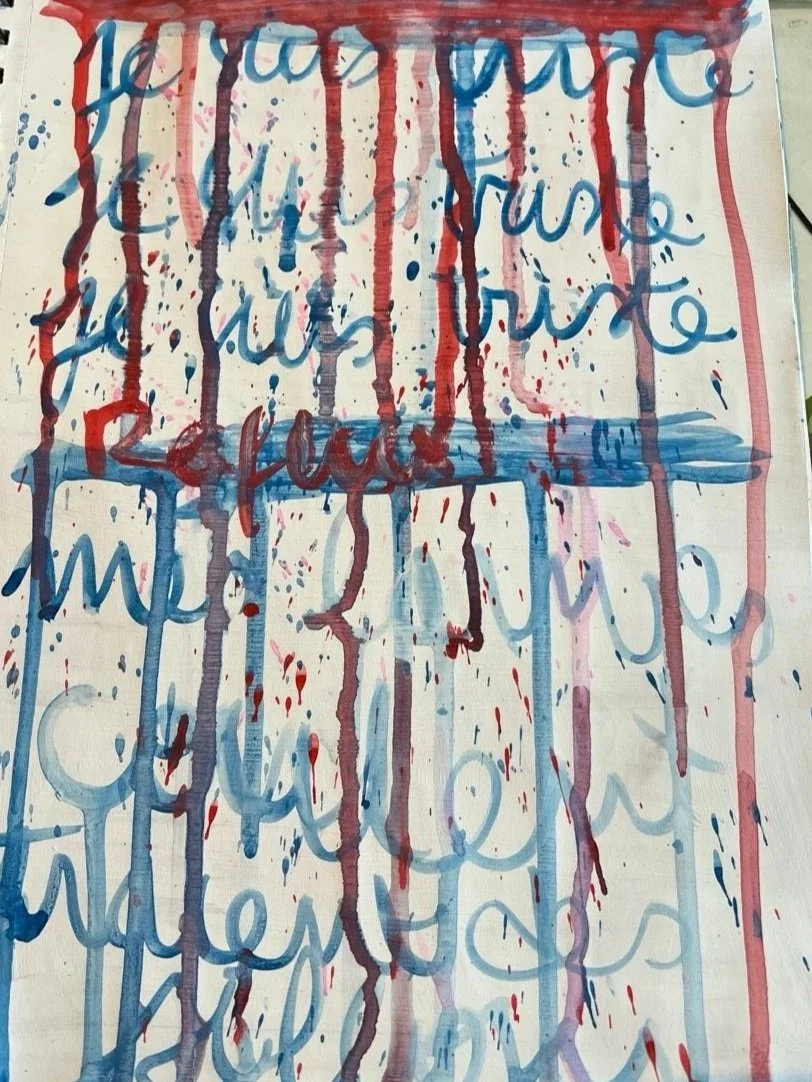 je suis triste
je suis triste
je suis triste
Reflux
mes larmes
coulent
tracent des